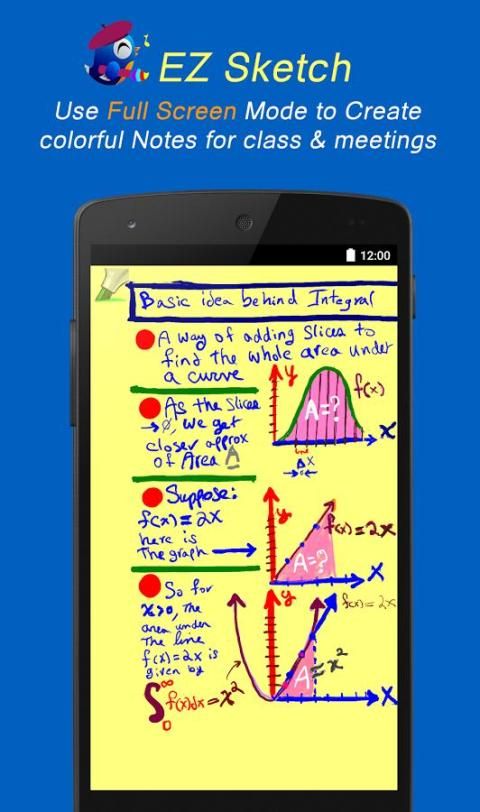 EZ Sketch
Use Full Screen Mode to Create
colorful Notes for class & meetings
12:00
Basic idea behind Integral
A way of adding Slices to
find the whole area under
a curve
y
f(x)
A=?
x
Δx
As the Slices
→∅, we get
closer approx
of Area A
Suppose:
f(x)=2x
here is
The graph
y
f(x)=2x
A=?
x
So for
x>0, The
area under
The line
f(x)=2x is
given by
∫₀^∞ f(x)dx=x²
y
f(x)=2x
A=x²
x